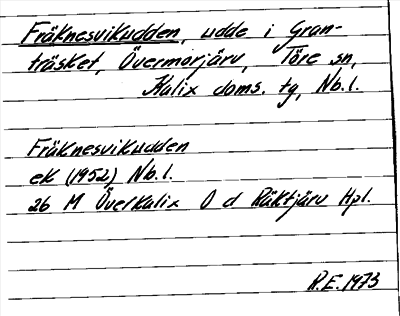 Fräknesvikudden, udde i Gran-
träsket, Övermorjärv, Töre sn,
Kalix doms. tg, Nb.l.
Fräknesvikudden
ek (1952) Nb.l.
26 M Överkalix O d Räktjärv Hpl.
R.E. 1973